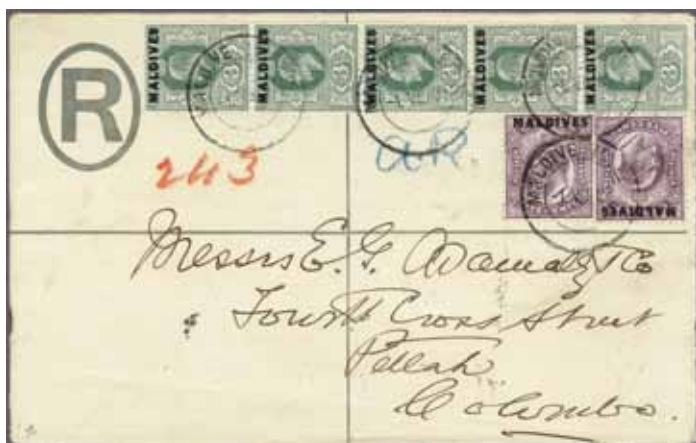 R
MALDIVES MALDIVES MALDIVES MALDIVES MALDIVES
3 3 3 3 3
243
A.R.
MALDIVES MALDIVES
MALDIVE
Messrs E. G. Adamaly & Co
Fourth Cross Street
Pettah
Colombo.